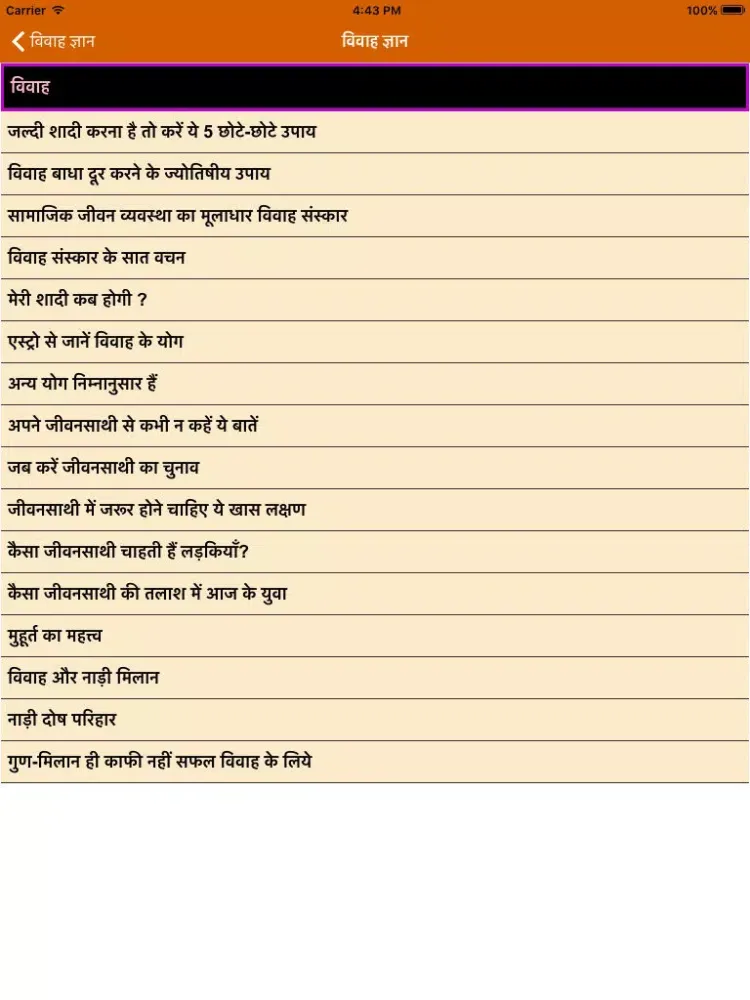 Carrier 4:43 PM 100%
विवाह ज्ञान विवाह ज्ञान
विवाह
जल्दी शादी करना है तो करें ये 5 छोटे-छोटे उपाय
विवाह बाधा दूर करने के ज्योतिषीय उपाय
सामाजिक जीवन व्यवस्था का मूलाधार विवाह संस्कार
विवाह संस्कार के सात वचन
मेरी शादी कब होगी ?
एस्ट्रो से जानें विवाह के योग
अन्य योग निम्नानुसार हैं
अपने जीवनसाथी से कभी न कहें ये बातें
जब करें जीवनसाथी का चुनाव
जीवनसाथी में जरूर होने चाहिए ये खास लक्षण
कैसा जीवनसाथी चाहती हैं लड़कियाँ?
कैसा जीवनसाथी की तलाश में आज के युवा
मुहूर्त का महत्त्व
विवाह और नाड़ी मिलान
नाड़ी दोष परिहार
गुण-मिलान ही काफी नहीं सफल विवाह के लिये